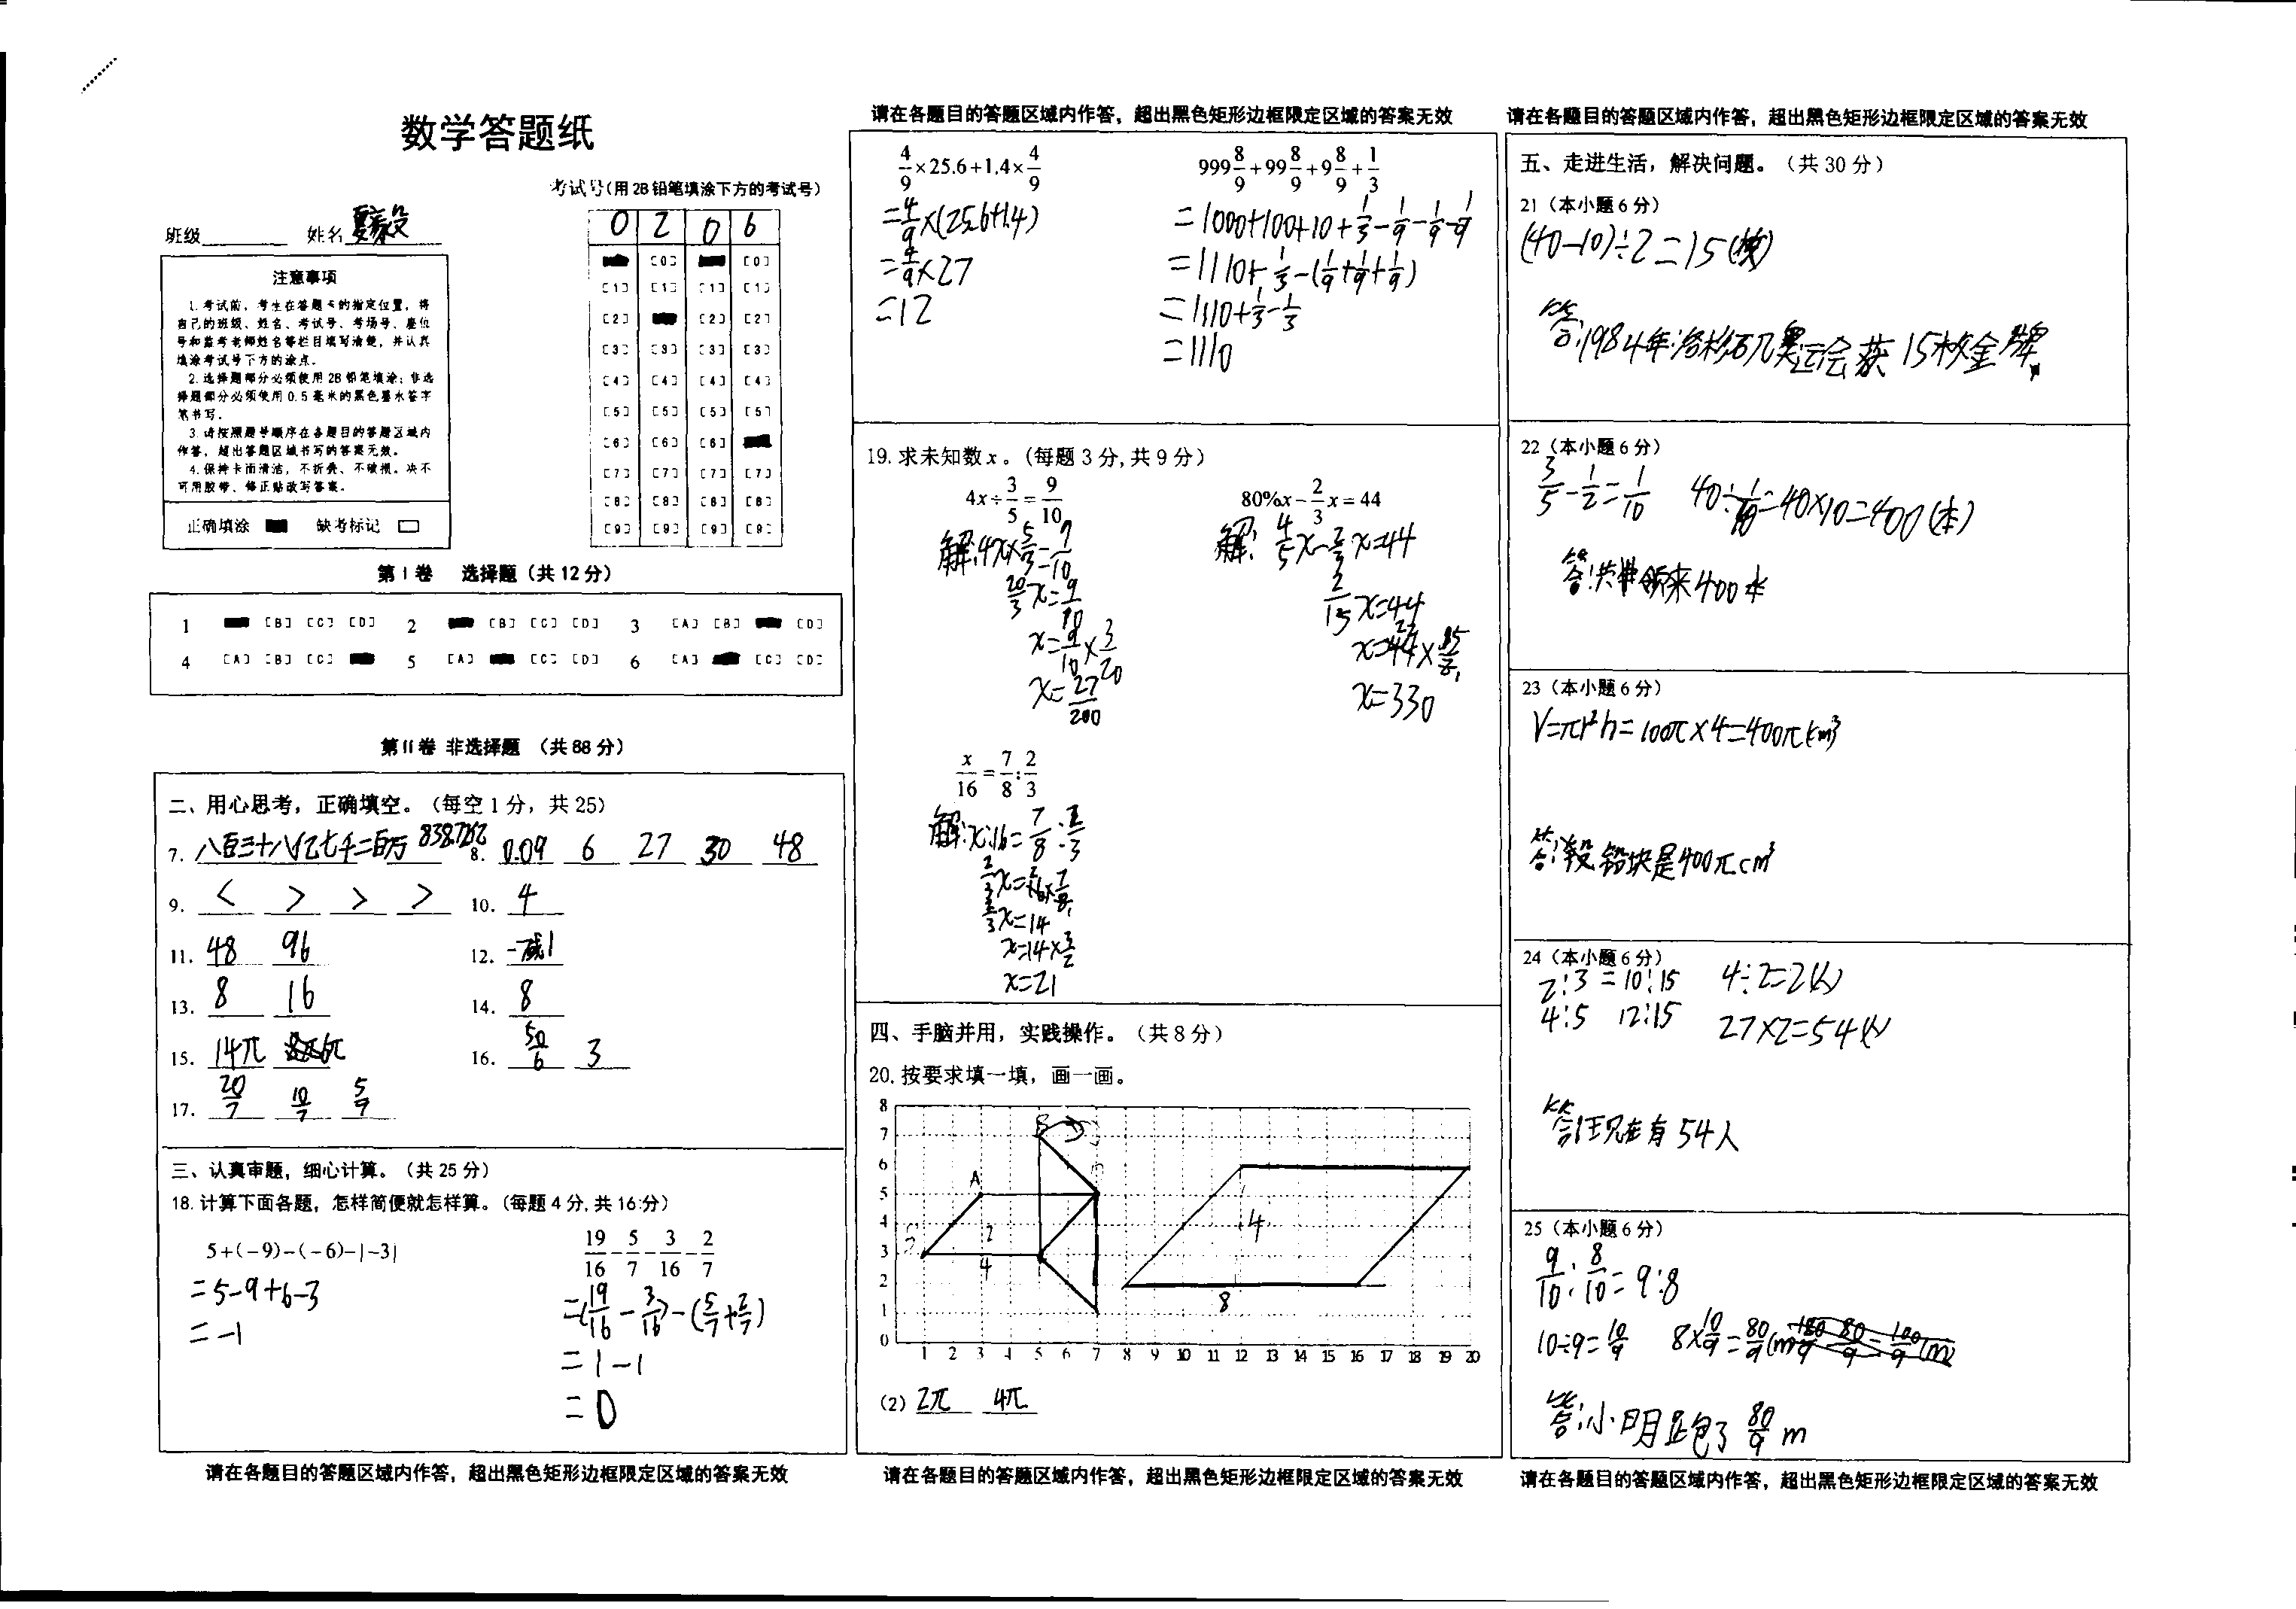 数学答题纸
考试号(用2B铅笔填涂下方的考试号)
班级 姓名
0 2 0 6
[0] [0]
[1] [1] [1] [1]
[2] [2] [2]
[3] [3] [3] [3]
[4] [4] [4] [4]
[5] [5] [5] [5]
[6] [6] [6]
[7] [7] [7] [7]
[8] [8] [8] [8]
[9] [9] [9] [9]
注意事项
1.考试前，考生在答题卡的指定位置，将
自己的班级、姓名、考试号、考场号、座位
号和监考老师姓名等栏目填写清楚，并认真
填涂考试号下方的涂点。
2.选择题部分必须使用2B铅笔填涂；非选
择题部分必须使用0.5毫米的黑色墨水签字
笔书写。
3.请按照题号顺序在各题目的答题区域内
作答，超出答题区域书写的答案无效。
4.保持卡面清洁，不折叠、不破损。决不
可用胶带、修正贴改写答案。
正确填涂 缺考标记
第I卷 选择题（共12分）
1 [B] [C] [D] 2 [B] [C] [D] 3 [A] [B] [D]
4 [A] [B] [C] 5 [A] [C] [D] 6 [A] [C] [D]
第II卷 非选择题 （共88分）
二、用心思考，正确填空。（每空1分，共25）
7. 八百三十八亿七千二百万 8. 0.09 6 27 30 48
9. < > > > 10. 4
11. 48 96 12.
13. 8 16 14. 8
15. 14π 16. 50/6 3
17. 20/7 10/7 5/7
三、认真审题，细心计算。（共25分）
18.计算下面各题，怎样简便就怎样算。（每题4分,共16分）
5+(-9)-(-6)-|-3|
=5-9+6-3
=-1
19/16-5/7-3/16-2/7
=(19/16-3/16)-(5/7+2/7)
=1-1
=0
请在各题目的答题区域内作答，超出黑色矩形边框限定区域的答案无效
请在各题目的答题区域内作答，超出黑色矩形边框限定区域的答案无效
4/9×25.6+1.4×4/9
=4/9×(25.6+1.4)
=4/9×27
=12
999 8/9+99 8/9+9 8/9+1/3
=1000+100+10+1/3-1/9-1/9-1/9
=1110+1/3-(1/9+1/9+1/9)
=1110+1/3-1/3
=1110
19.求未知数x。（每题3分,共9分）
4x÷3/5=9/10
解:4x×5/3=9/10
20/3x=9/10
x=9/10×3/20
x=27/200
80%x-2/3x=44
解:4/5x-2/3x=44
2/15x=44
x=44×15/2
x=330
x/16=7/8:2/3
解:x:16=7/8:2/3
2/3x=16×7/8
2/3x=14
x=14×3/2
x=21
四、手脑并用，实践操作。（共8分）
20.按要求填一填，画一画。
8
7 B
6
5 A
4 2 4
3 4
2
1 8
0
1 2 3 4 5 6 7 8 9 10 11 12 13 14 15 16 17 18 19 20
(2) 2π 4π
请在各题目的答题区域内作答，超出黑色矩形边框限定区域的答案无效
请在各题目的答题区域内作答，超出黑色矩形边框限定区域的答案无效
五、走进生活，解决问题。（共30分）
21（本小题6分）
(40-10)÷2=15(枚)
答:1984年洛杉矶奥运会获15枚金牌.
22（本小题6分）
3/5-1/2=1/10 40÷1/10=40×10=400(本)
答:共 领来400本
23（本小题6分）
V=πr²h=100π×4=400π(cm³)
答:这段铅块是400πcm³
24（本小题6分）
2:3=10:15 4÷2=2(人)
4:5 12:15 27×2=54(人)
答:现在有54人
25（本小题6分）
9/10:8/10=9:8
10÷9=10/9 8×10/9=80/9(m)
答:小明跑了80/9m
请在各题目的答题区域内作答，超出黑色矩形边框限定区域的答案无效